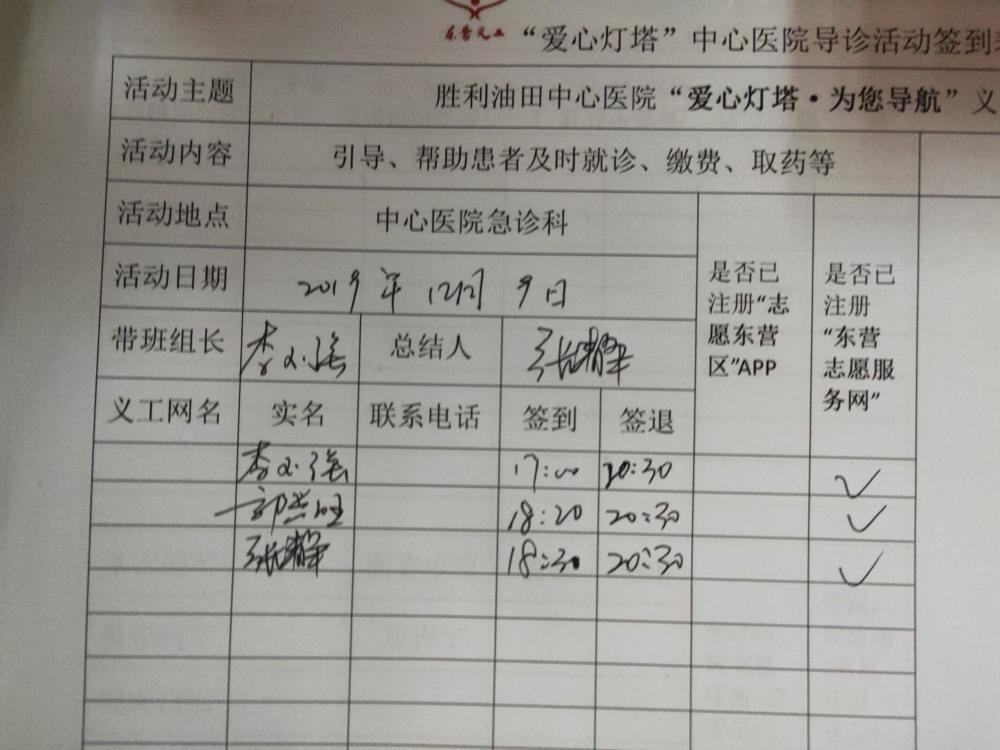 东营义工
“爱心灯塔”中心医院导诊活动签到表
活动主题 胜利油田中心医院“爱心灯塔·为您导航”义
活动内容 引导、帮助患者及时就诊、缴费、取药等
活动地点 中心医院急诊科
是否已注册“志愿东营区”APP
是否已注册“东营志愿服务网”
活动日期 2019年12月9日
带班组长 李小强 总结人 张静
义工网名 实名 联系电话 签到 签退
李小强 17:00 20:30 ✓
18:20 20:30 ✓
张静 18:30 20:30 ✓